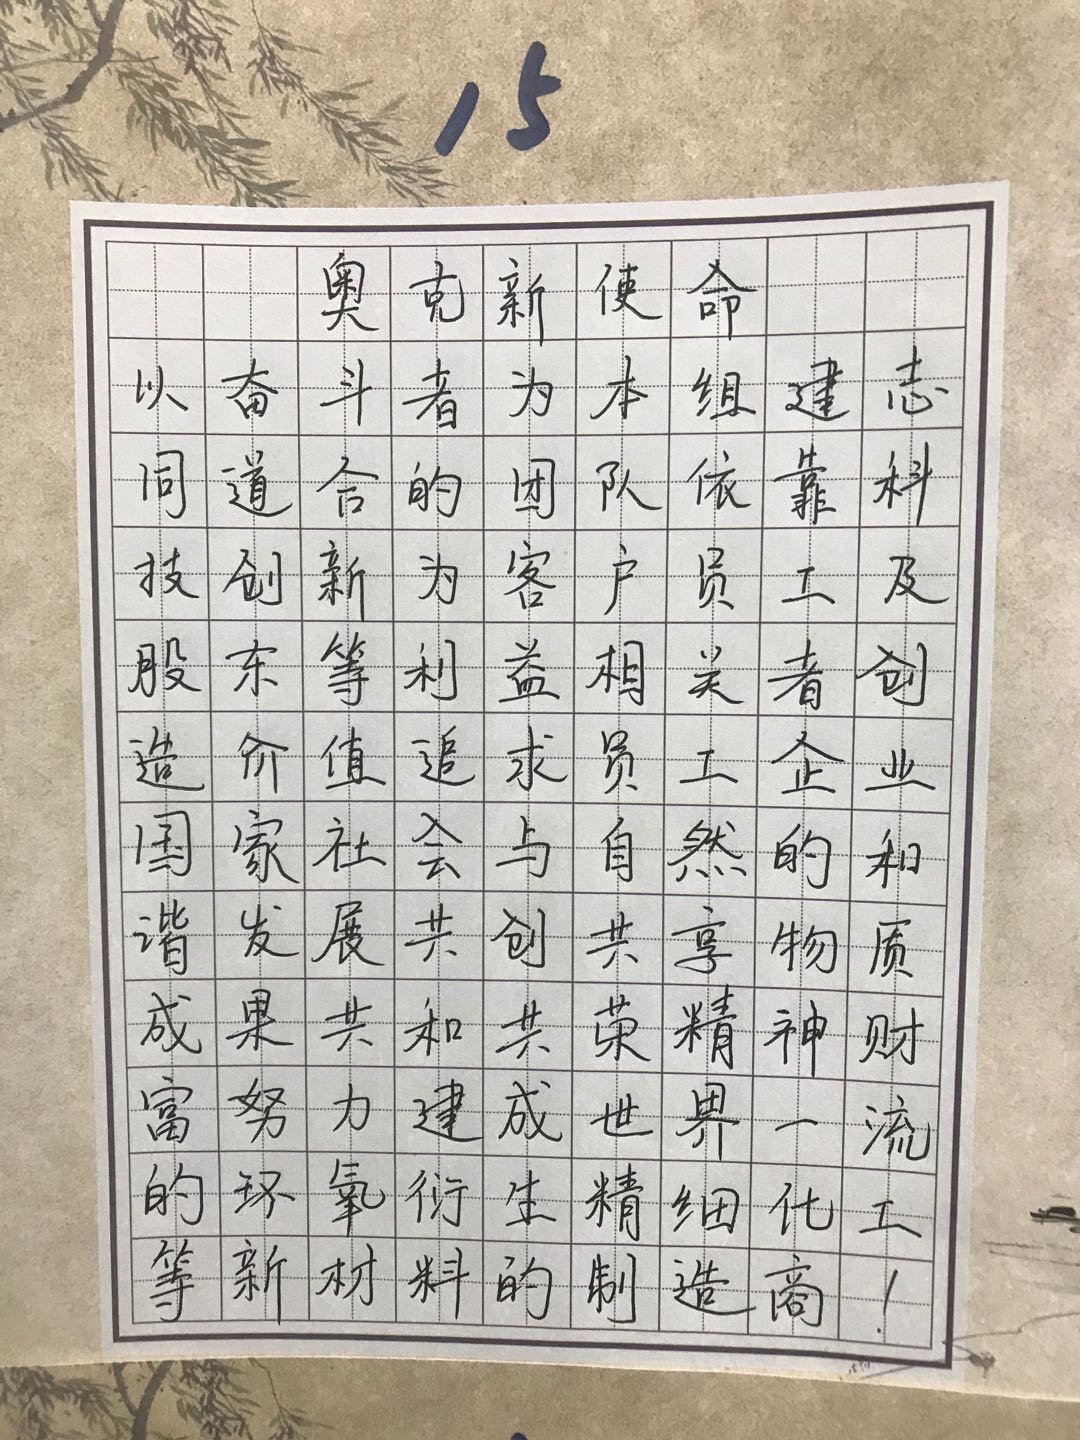 15
奥克新使命
以奋斗者为本组建志
同道合的团队依靠科
技创新为客户员工及
股东等利益相关者创
造价值追求员工企业
国家社会与自然的和
谐发展共创共享物质
成果共和共荣精神财
富努力建成世界一流
的环氧衍生精细化工
等新材料的制造商！